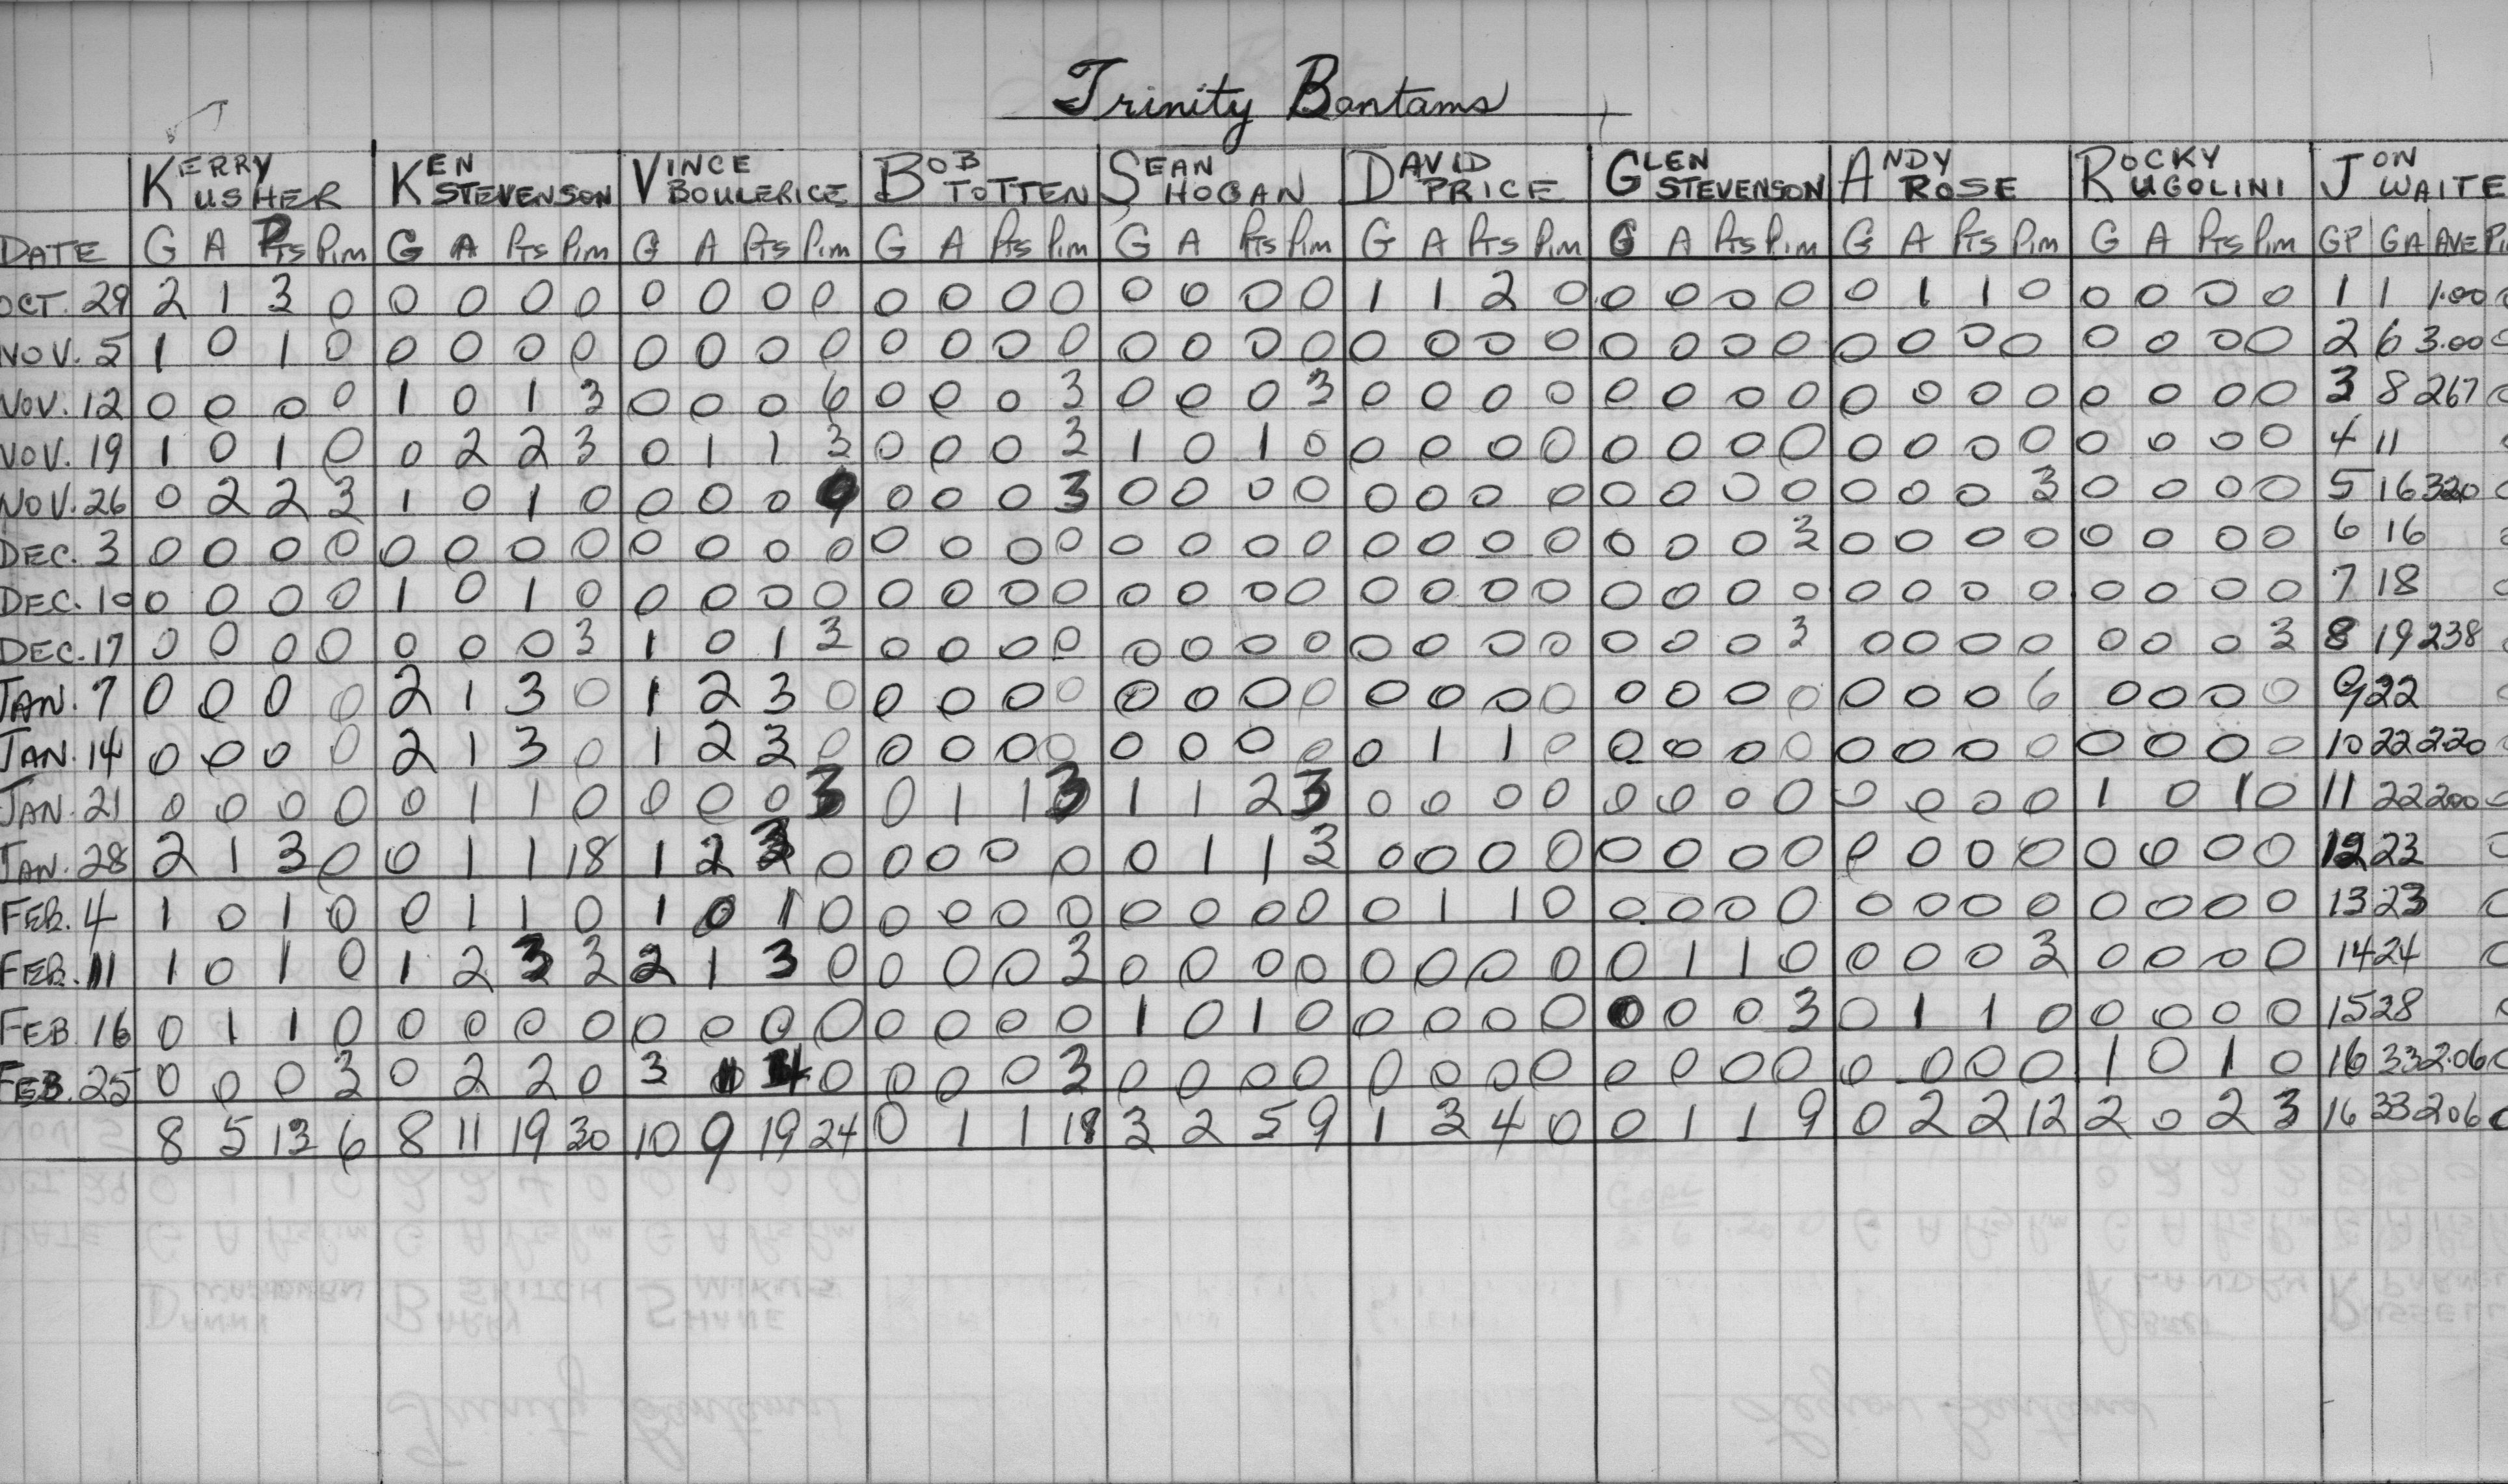 Trinity Bantams
KERRY USHER KEN STEVENSON VINCE BOULERICE BOB TOTTEN SEAN HOGAN DAVID PRICE GLEN STEVENSON ANDY ROSE ROCKY RUGOLINI JON WAITE
DATE G A Pts Pim G A Pts Pim G A Pts Pim G A Pts Pim G A Pts Pim G A Pts Pim G A Pts Pim G A Pts Pim G A Pts Pim GP GA AVE
OCT. 29 2 1 3 0 0 0 0 0 0 0 0 0 0 0 0 0 0 0 0 0 1 1 2 0 0 0 0 0 0 1 1 0 0 0 0 0 1 1 1.00
NOV. 5 1 0 1 0 0 0 0 0 0 0 0 0 0 0 0 0 0 0 0 0 0 0 0 0 0 0 0 0 0 0 0 0 0 0 0 0 2 6 3.00
NOV. 12 0 0 0 0 1 0 1 3 0 0 0 6 0 0 0 3 0 0 0 3 0 0 0 0 0 0 0 0 0 0 0 0 0 0 0 0 3 8 267
NOV. 19 1 0 1 0 0 2 2 3 0 1 1 3 0 0 0 3 1 0 1 0 0 0 0 0 0 0 0 0 0 0 0 0 0 0 0 0 4 11
NOV. 26 0 2 2 3 1 0 1 0 0 0 0 9 0 0 0 3 0 0 0 0 0 0 0 0 0 0 0 0 0 0 0 3 0 0 0 0 5 16 320
DEC. 3 0 0 0 0 0 0 0 0 0 0 0 0 0 0 0 0 0 0 0 0 0 0 0 0 0 0 0 3 0 0 0 0 0 0 0 0 6 16
DEC. 10 0 0 0 0 1 0 1 0 0 0 0 0 0 0 0 0 0 0 0 0 0 0 0 0 0 0 0 0 0 0 0 0 0 0 0 0 7 18
DEC. 17 0 0 0 0 0 0 0 3 1 0 1 3 0 0 0 0 0 0 0 0 0 0 0 0 0 0 0 3 0 0 0 0 0 0 0 3 8 19 238
JAN. 7 0 0 0 0 2 1 3 0 1 2 3 0 0 0 0 0 0 0 0 0 0 0 0 0 0 0 0 0 0 0 0 6 0 0 0 0 9 22
JAN. 14 0 0 0 0 2 1 3 0 1 2 3 0 0 0 0 0 0 0 0 0 0 1 1 0 0 0 0 0 0 0 0 0 0 0 0 0 10 22 2.20
JAN. 21 0 0 0 0 0 1 1 0 0 0 0 3 0 1 1 3 1 1 2 3 0 0 0 0 0 0 0 0 0 0 0 0 1 0 1 0 11 22 200
JAN. 28 2 1 3 0 0 1 1 18 1 2 3 0 0 0 0 0 0 1 1 3 0 0 0 0 0 0 0 0 0 0 0 0 0 0 0 0 12 23
FEB. 4 1 0 1 0 0 1 1 0 1 0 1 0 0 0 0 0 0 0 0 0 0 1 1 0 0 0 0 0 0 0 0 0 0 0 0 0 13 23
FEB. 11 1 0 1 0 1 2 3 3 2 1 3 0 0 0 0 3 0 0 0 0 0 0 0 0 0 1 1 0 0 0 0 3 0 0 0 0 14 24
FEB 16 0 1 1 0 0 0 0 0 0 0 0 0 0 0 0 0 1 0 1 0 0 0 0 0 0 0 0 3 0 1 1 0 0 0 0 0 15 28
FEB. 25 0 0 0 3 0 2 2 0 3 1 4 0 0 0 0 3 0 0 0 0 0 0 0 0 0 0 0 0 0 0 0 0 1 0 1 0 16 33 2.06
8 5 13 6 8 11 19 30 10 9 19 24 0 1 1 18 3 2 5 9 1 3 4 0 0 1 1 9 0 2 2 12 2 0 2 3 16 33 206